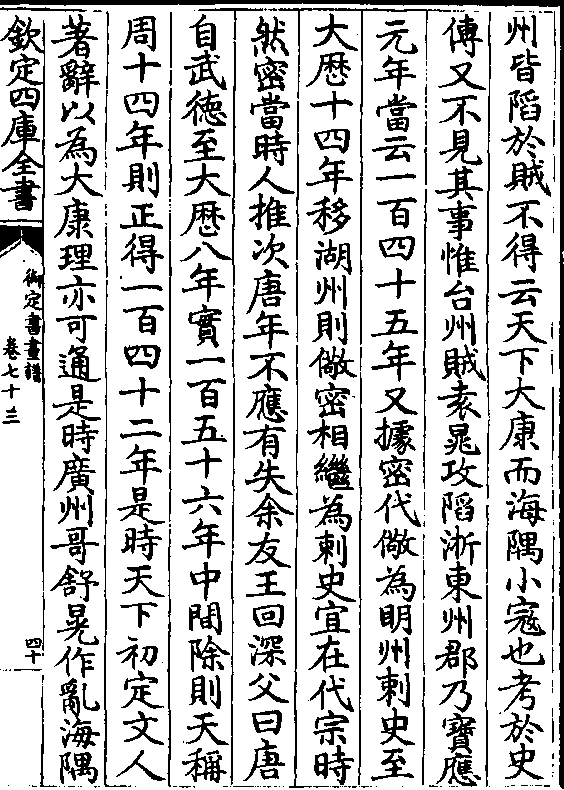 州皆䧟於賊不得云天下大康而海隅小宼也考於史
傳又不見其事惟台州賊袁晁攻䧟浙東州郡乃寶應
元年當云一百四十五年又據密代儆為明州刺史至
大厯十四年移湖州則儆密相繼為刺史宜在代宗時
然密當時人推次唐年不應有失余友王回深父曰唐
自武徳至大厯八年實一百五十六年中間除則天稱
周十四年則正得一百四十二年是時天下初定文人
著辭以為大康理亦可通是時廣州哥舒晃作亂海隅
欽定四庫全書
御定書畫譜
卷七十三
四十